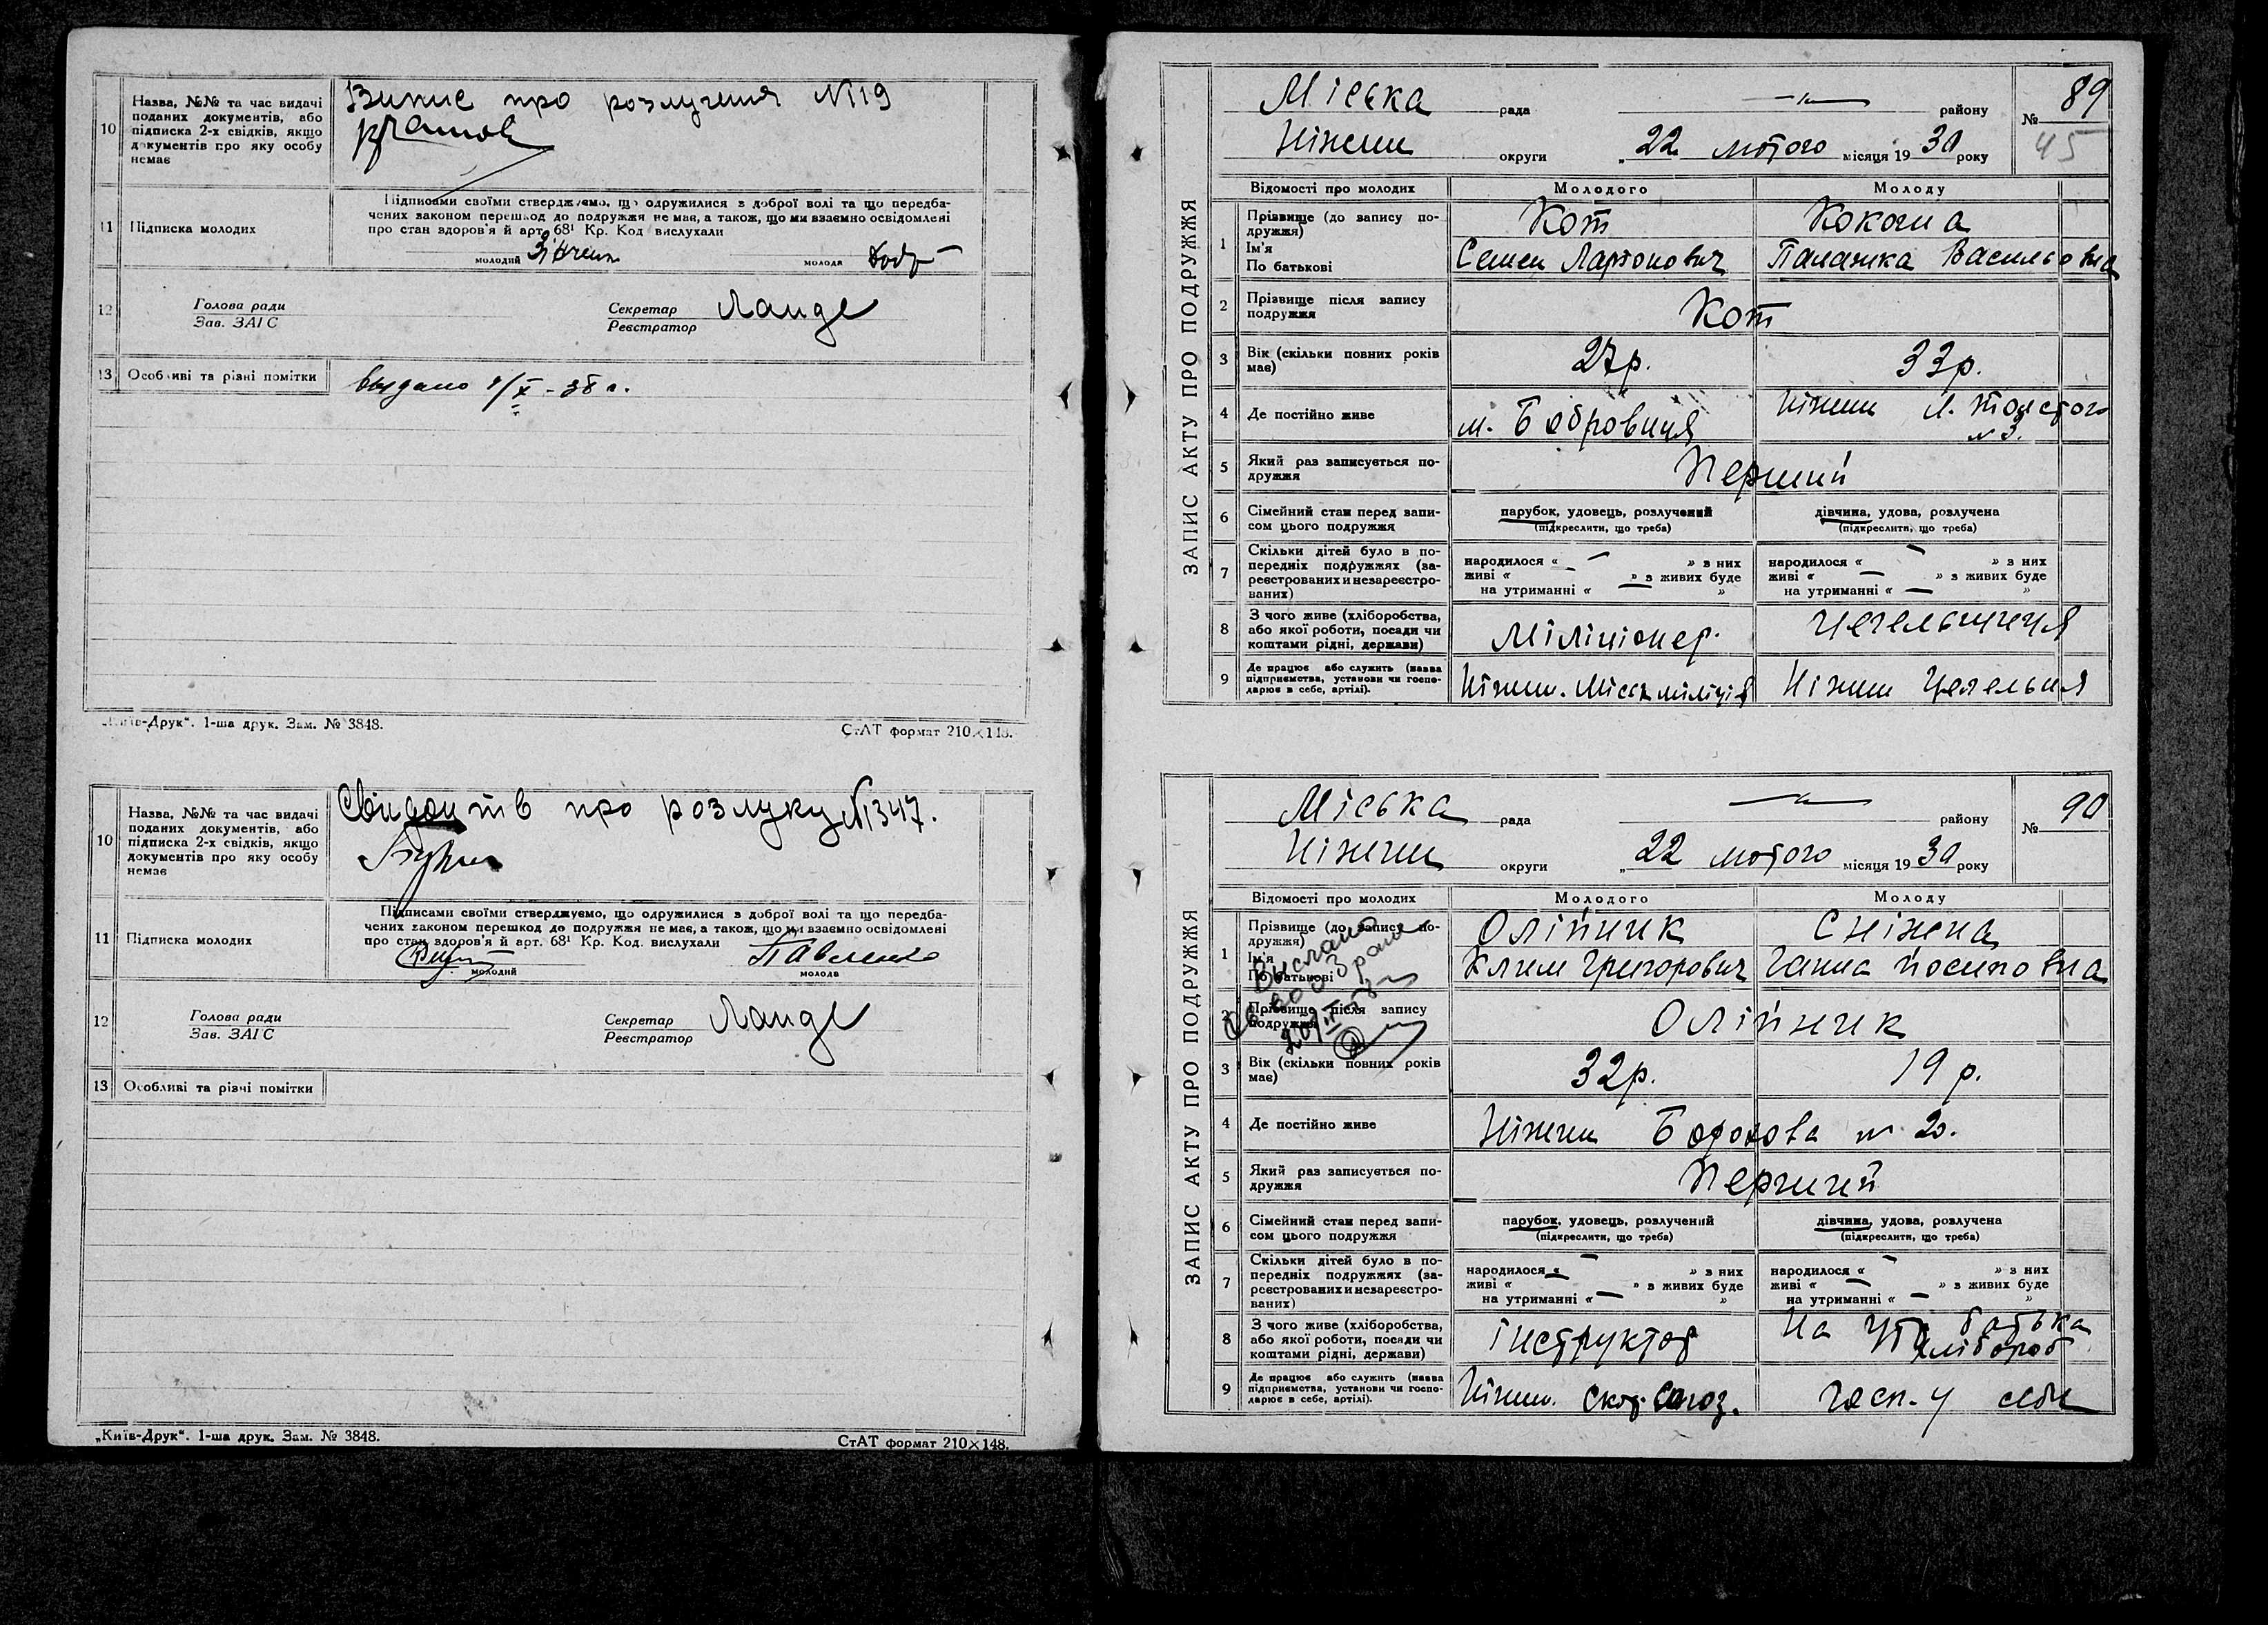 10
Назва, №№ та час видачі
поданих документів, або
підписка 2-х свідків, якщо
документів про яку особу
немає
Випис про розлучення №119
11
Підписка молодих
Підписами своїми стверджуємо, що одружилися з доброї волі та що передба-
чених законом перешкод до подружжя не має, а також, що ми взаємно освідомлені
про стан здоров'я й арт. 68¹ Кр. Код вислухали
молодий
молода
12
Голова ради
Зав. ЗАГС
Секретар
Реєстратор
Ланде
13
Особливі та різні помітки
выдано
„Київ-Друк“. 1-ша друк. Зам. № 3848.
СтАТ формат 210×148.
10
Назва, №№ та час видачі
поданих документів, або
підписка 2-х свідків, якщо
документів про яку особу
немає
про розлуку №1347.
11
Підписка молодих
Підписами своїми стверджуємо, що одружилися з доброї волі та що передба-
чених законом перешкод до подружжя не має, а також, що ми взаємно освідомлені
про стан здоров'я й арт. 68¹ Кр. Код. вислухали
молодий
Павленко
молода
12
Голова ради
Зав. ЗАГС
Секретар
Реєстратор
Ланде
13
Особливі та різні помітки
„Київ-Друк“. 1-ша друк. Зам. № 3848.
СтАТ формат 210×148.
ЗАПИС АКТУ ПРО ПОДРУЖЖЯ
Міська рада району
№ 89
45
Ніжин округи „22 лютого місяця 1930 року
Відомості про молодих
Молодого
Молоду
1
Прізвище (до запису по-
дружжя)
Ім'я
По батькові
Кот
Семен Ларіонович
Кокоша
Палажка Васильовна
2
Прізвище після запису
подружжя
Кот
3
Вік (скільки повних років
має)
27р.
33р.
4
Де постійно живе
м. Бобровиця
Ніжин Л. Толстого
№ 3.
5
Який раз записується по-
дружжя
Перший
6
Сімейний стан перед запи-
сом цього подружжя
парубок, удовець, розлучений
(підкреслити, що треба)
дівчина, удова, розлучена
(підкреслити, що треба)
7
Скільки дітей було в по-
передніх подружжях (за-
реєстрованих и незареєстро-
ваних)
народилося « » з них
живі « » з живих буде
на утриманні « »
народилося « » з них
живі « » з живих буде
на утриманні « »
8
З чого живе (хліборобства,
або якої роботи, посади чи
коштами рідні, держави)
Міліціонер.
Цегельниця
9
Де працює або служить (назва
підприємства, установи чи госпо-
дарює в себе, артілі).
Ніжин. Міськміліція
Ніжин Цегельня
ЗАПИС АКТУ ПРО ПОДРУЖЖЯ
Міська рада району
№ 90
Ніжин округи „22 лютого місяця 1930 року
Відомості про молодих
Молодого
Молоду
1
Прізвище (до запису по-
дружжя)
Ім'я
По батькові
Олійник
Клим Григорович
Сніжна
Ганна Йосиповна
2
Прізвище після запису
подружжя
Олійник
3
Вік (скільки повних років
має)
32р.
19 р.
4
Де постійно живе
Ніжин № 20.
5
Який раз записується по-
дружжя
Перший
6
Сімейний стан перед запи-
сом цього подружжя
парубок, удовець, розлучений
(підкреслити, що треба)
дівчина, удова, розлучена
(підкреслити, що треба)
7
Скільки дітей було в по-
передніх подружжях (за-
реєстрованих и незареєстро-
ваних)
народилося « » з них
живі « » з живих буде
на утриманні « »
народилося « » з них
живі « » з живих буде
на утриманні « »
8
З чого живе (хліборобства,
або якої роботи, посади чи
коштами рідні, держави)
інструктор
На утр. батька
хлібороб
9
Де працює або служить (назва
підприємства, установи чи госпо-
дарює в себе, артілі).
Ніжин. союз.
госп. у себе